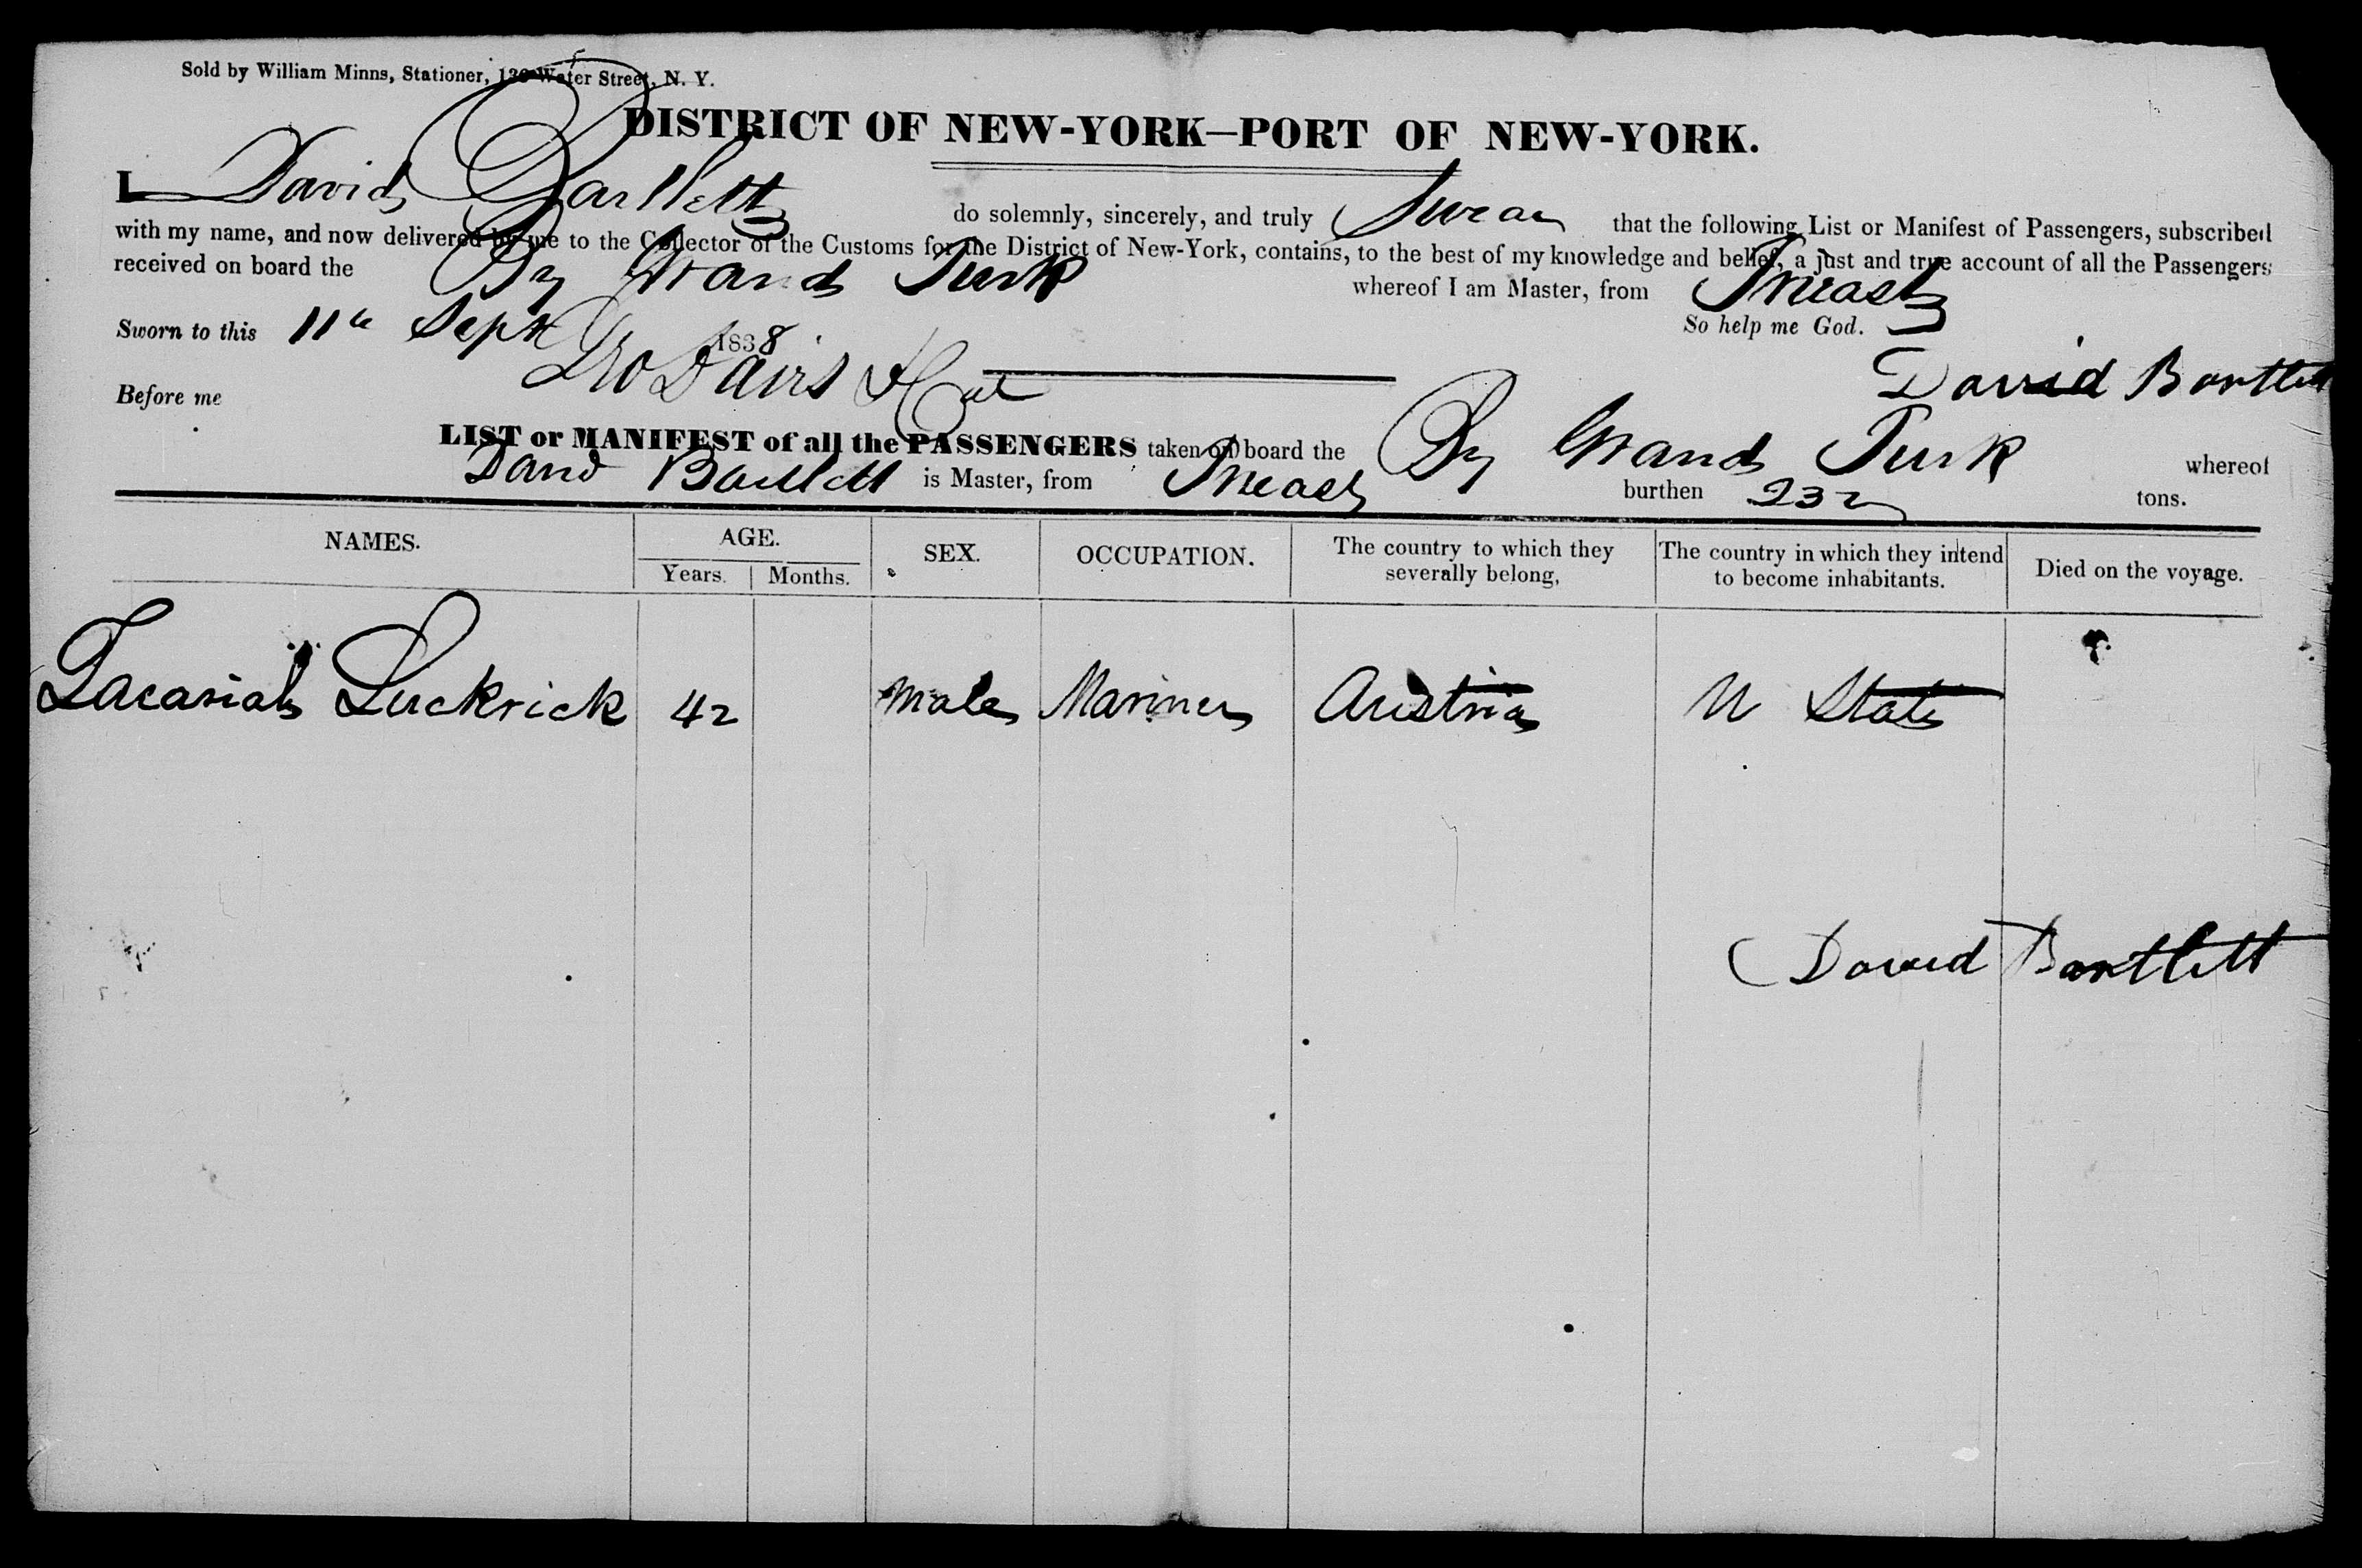 Sold by William Minns, Stationer, 136 Water Street, N. Y.
DISTRICT OF NEW-YORK—PORT OF NEW-YORK.
I David Bartlett do solemnly, sincerely, and truly Swear that the following List or Manifest of Passengers, subscribed
with my name, and now delivered by me to the Collector of the Customs for the District of New-York, contains, to the best of my knowledge and belief, a just and true account of all the Passengers
received on board the Bg Grand Turk whereof I am Master, from Trieste
Sworn to this 11th Sept 1838 So help me God.
Geo Davis David Bartlett
Before me
LIST or MANIFEST of all the PASSENGERS taken on board the Bg Grand Turk whereof
David Bartlett is Master, from Trieste burthen 232 tons.
NAMES. AGE. SEX. OCCUPATION. The country to which they severally belong, The country in which they intend to become inhabitants. Died on the voyage.
Years. Months.
Zacariah Luckrick 42 Male Mariner Austria U States
David Bartlett